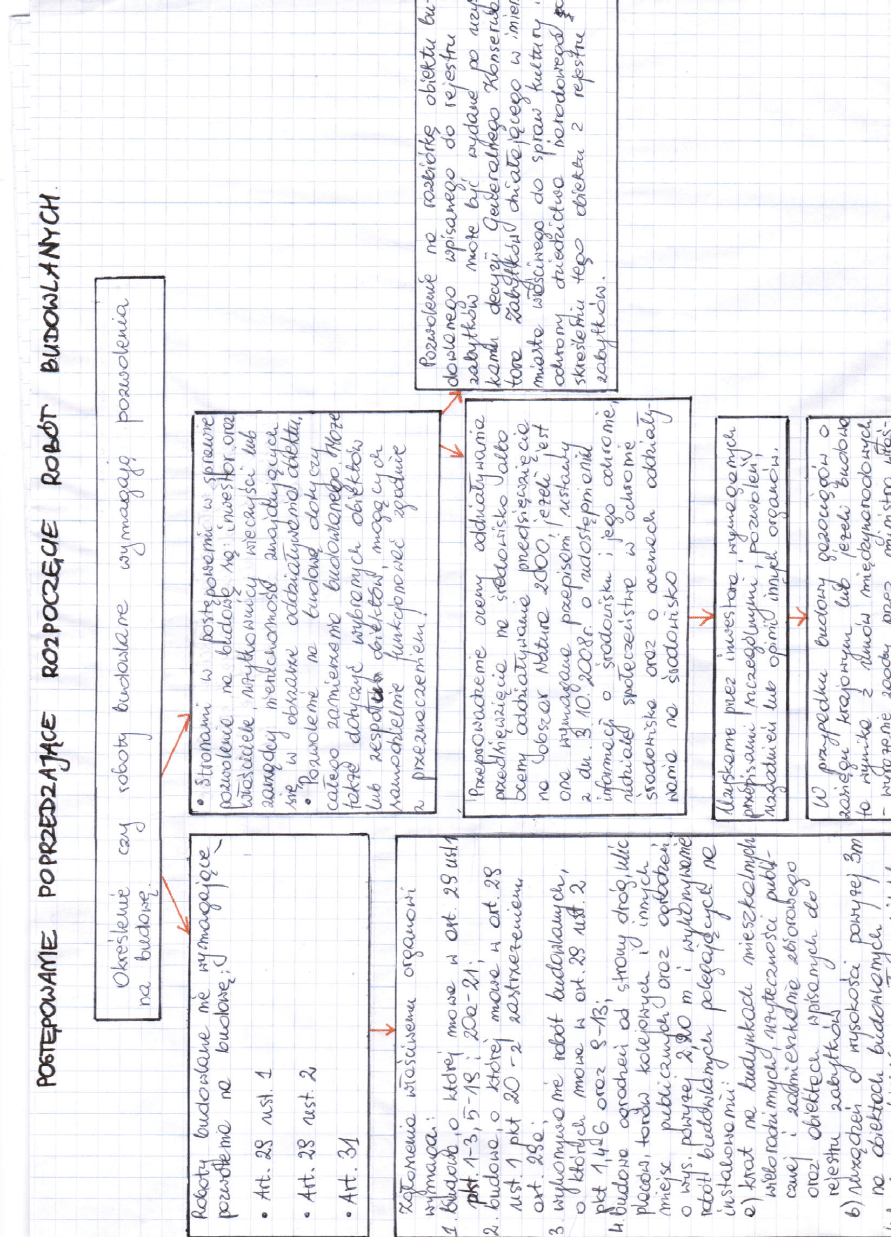 POSTĘPOWANIE POPRZEDZAJĄCE ROZPOCZĘCIE ROBÓT BUDOWLANYCH.
Określenie czy roboty budowlane wymagają pozwolenia
na budowę.
Roboty budowlane nie wymagające
pozwolenia na budowę:
• Art. 29 ust. 1
• Art. 29 ust. 2
• Art. 31
Zgłoszenia właściwemu organowi
wymaga:
1. budowa, o której mowa w art. 29 ust 1
pkt. 1-3, 5-19 i 20a-21;
2. budowa, o której mowa w art. 29
ust. 1 pkt 20 - z zastrzeżeniem
art. 29a;
3. wykonywanie robót budowlanych,
o których mowa w art. 29 ust. 2
pkt 1, 4-6 oraz 9-13;
4. budowa ogrodzeń od strony dróg, ulic
placów, torów kolejowych i innych
miejsc publicznych oraz ogrodzeń
o wys. powyżej 2,20 m i wykonywanie
robót budowlanych polegających na
instalowaniu:
a) krat na budynkach mieszkalnych
wielorodzinnych, użyteczności publi-
cznej i zamieszkania zbiorowego
oraz obiektach wpisanych do
rejestru zabytków
b) urządzeń o wysokości powyżej 3m
na obiektach budowlanych
• Stronami w postępowaniu w sprawie
pozwolenia na budowę są: inwestor oraz
właściciele, użytkownicy wieczyści lub
zarządcy nieruchomości znajdujących
się w obszarze oddziaływania obiektu.
• Pozwolenie na budowę dotyczy
całego zamierzenia budowlanego. Może
także dotyczyć wybranych obiektów
lub zespołów obiektów, mogących
samodzielnie funkcjonować zgodnie
z przeznaczeniem.
Pozwolenie na rozbiórkę obiektu bu-
dowlanego wpisanego do rejestru
zabytków może być wydane po uzys
kaniu decyzji Generalnego Konserwa
tora Zabytków działającego w imien
ministra właściwego do spraw kultury i
ochrony dziedzictwa narodowego
skreśleniu tego obiektu z rejestru
zabytków.
Przeprowadzenie oceny oddziaływania
przedsięwzięcia na środowisko albo
oceny oddziaływania przedsięwzięcia
na obszar Natura 2000, jeżeli jest
ona wymagana przepisami ustawy
z dn. 3.10.2008r. o udostępnianiu
informacji o środowisku i jego ochronie,
udziale społeczeństwa w ochronie
środowiska oraz o ocenach oddziały-
wania na środowisko
Uzyskanie przez inwestora, wymaganych
przepisami szczególnymi, pozwoleń,
uzgodnień lub opinii innych organów.
W przypadku budowy gazociągów o
zasięgu krajowym lub jeżeli budowa
ta wynika z umów międzynarodowych
- wyrażenie zgody przez ministra właś-